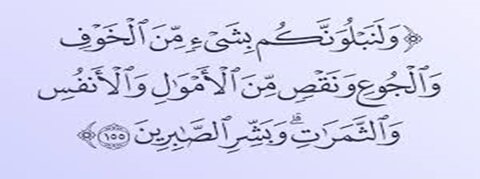 ﴿وَلَنَبْلُوَنَّكُم بِشَىْءٍ مِّنَ ٱلْخَوْفِ
وَٱلْجُوعِ وَنَقْصٍ مِّنَ ٱلْأَمْوَٰلِ وَٱلْأَنفُسِ
وَٱلثَّمَرَٰتِ ۗ وَبَشِّرِ ٱلصَّـٰبِرِينَ ١٥٥﴾